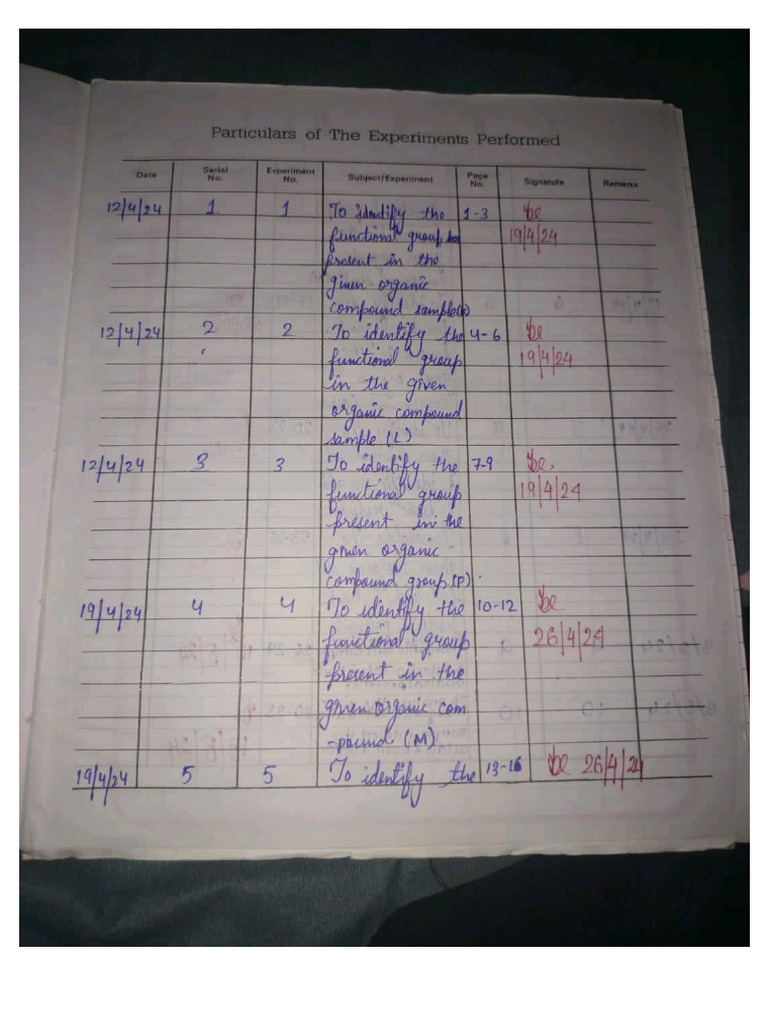 Particulars of The Experiments Performed
Date Serial No. Experiment No. Subject/Experiment Page No. Signature Remarks
12/4/24 1. 1 To identify the 1-3
functional group 19/4/24
present in the
given organic
compound sample(k)
12/4/24 2 2 To identify the 4-6
functional group 19/4/24
in the given
organic compound
sample (L)
12/4/24 3 3 To identify the 7-9
functional group 19/4/24
present in the
given organic
compound group (P)
19/4/24 4 4 To identify the 10-12
functional group 26/4/24
present in the
given organic com
-pound (M)
19/4/24 5 5 To identify the 13-16 26/4/24